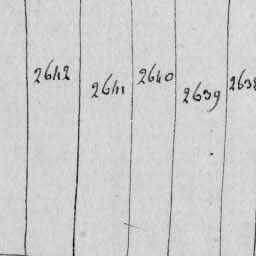 2642
2641
2640
2639
2638